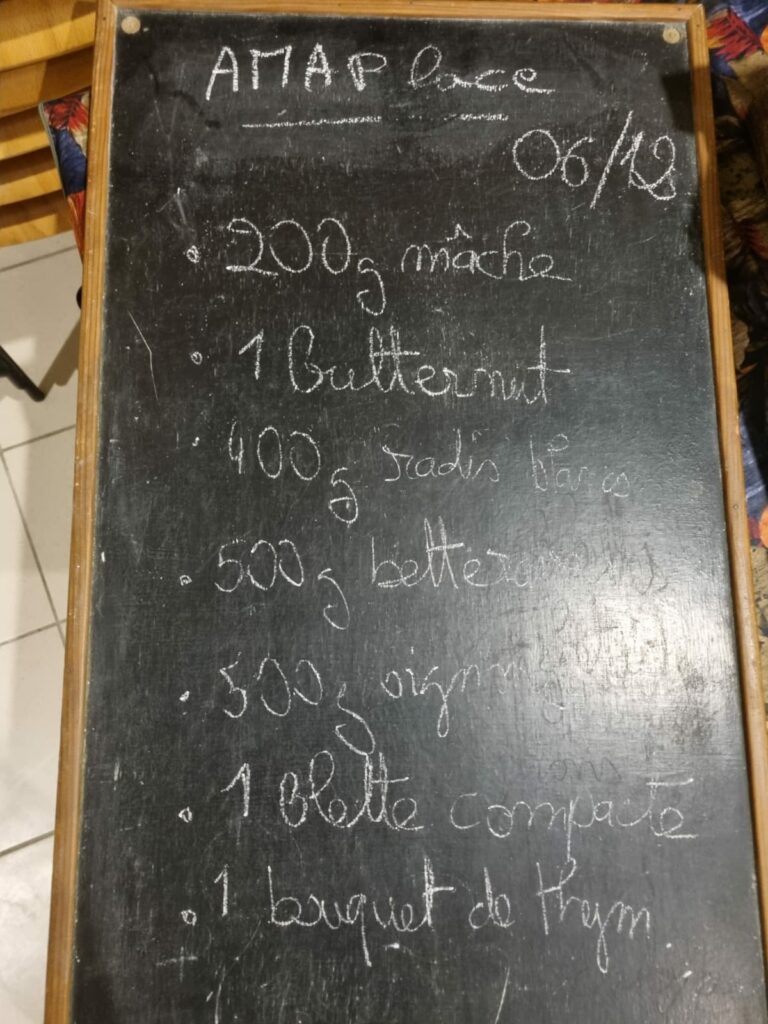 AMAPlace
06/12
• 200g mâche
• 1 butternut
• 400g radis blancs
• 500g betteraves
• 500g oignons
• 1 blette compacte
• 1 bouquet de thym